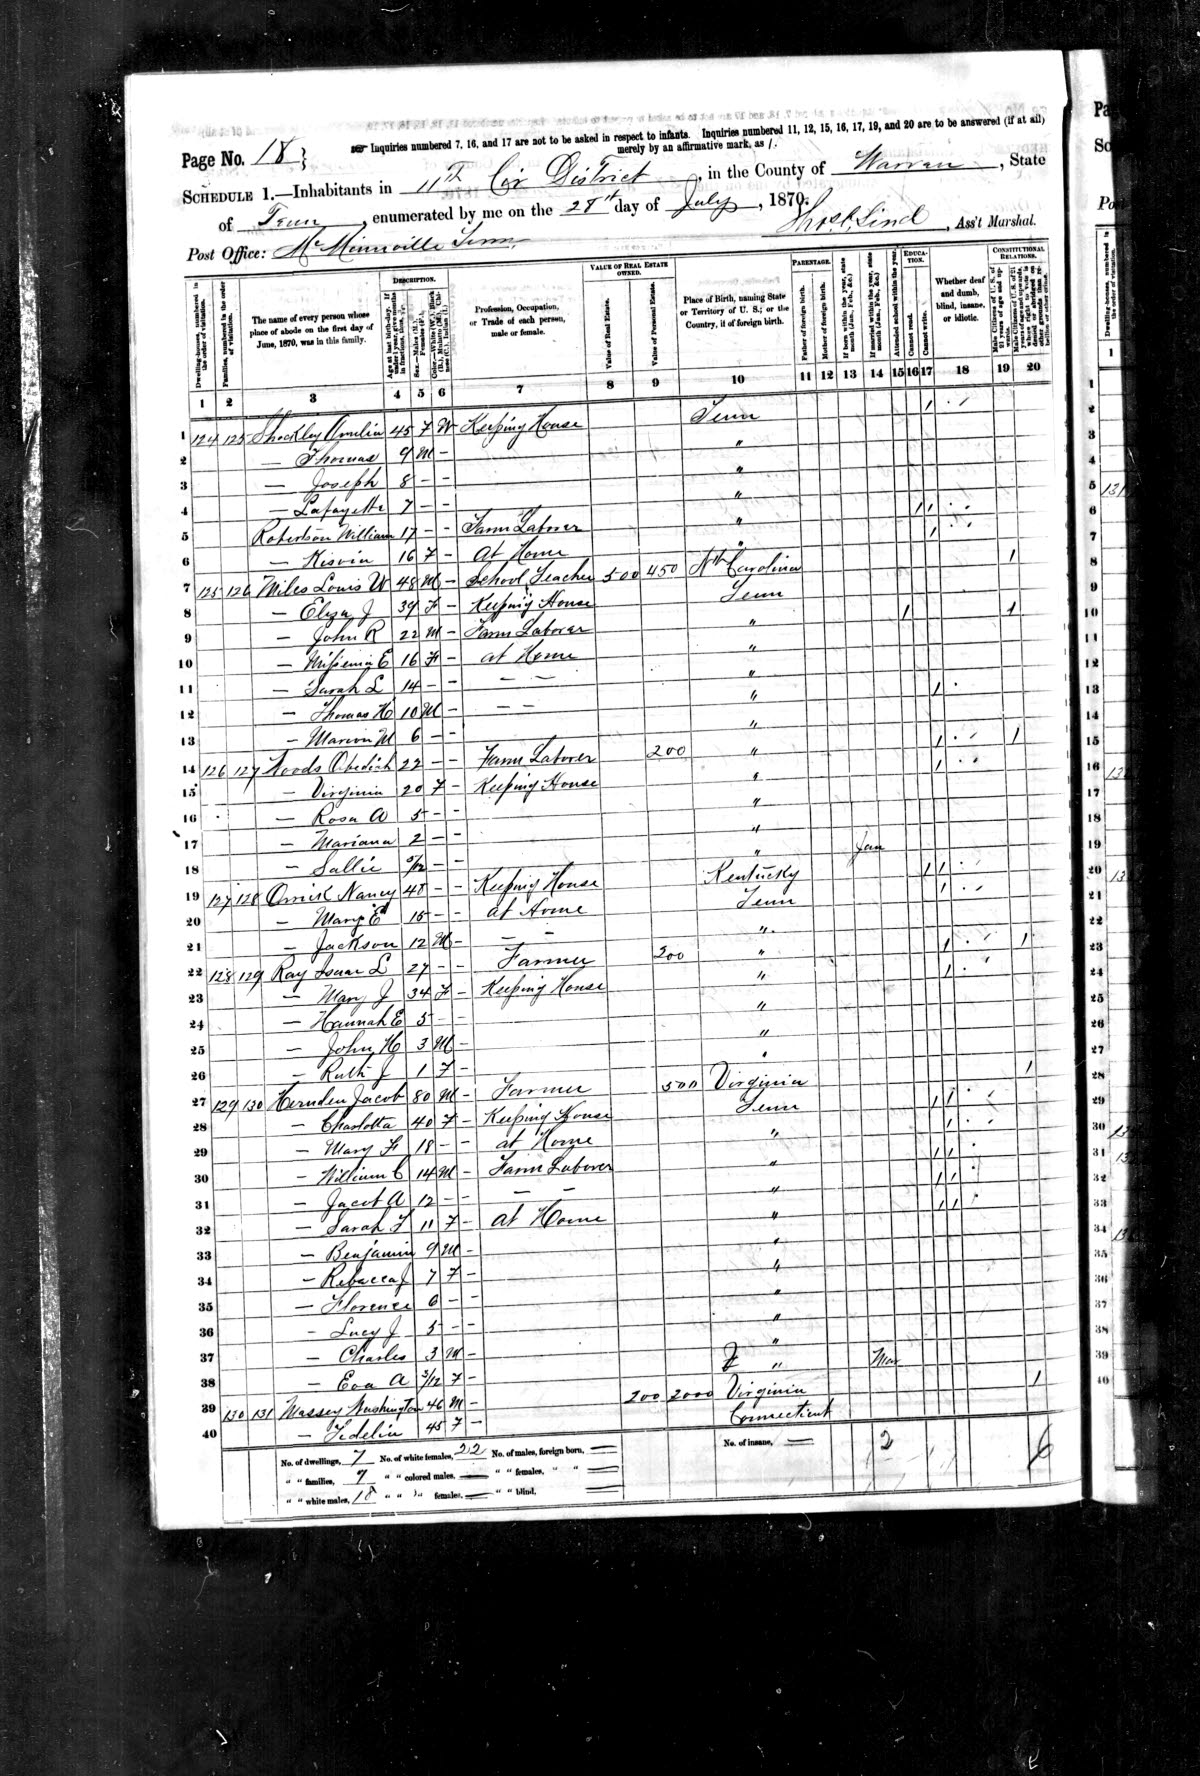 Page No. 18
Inquiries numbered 7, 16, and 17 are not to be asked in respect to infants. Inquiries numbered 11, 12, 15, 16, 17, 19, and 20 are to be answered (if at all) merely by an affirmative mark, as /.
SCHEDULE 1.—Inhabitants in 11th Civ District, in the County of Warren, State
of Tenn, enumerated by me on the 28th day of July, 1870.
Post Office: Mc Minnville Tenn. Ass't Marshal.
Dwelling-houses, numbered in the order of visitation.
Families, numbered in the order of visitation.
The name of every person whose place of abode on the first day of June, 1870, was in this family.
DESCRIPTION.
Age at last birth-day. If under 1 year, give months in fractions, thus, 3/12.
Sex.—Males (M.), Females (F.).
Color.—White (W.), Black (B.), Mulatto (M.), Chinese (C.), Indian (I.)
Profession, Occupation, or Trade of each person, male or female.
VALUE OF REAL ESTATE OWNED.
Value of Real Estate.
Value of Personal Estate.
Place of Birth, naming State or Territory of U. S.; or the Country, if of foreign birth.
PARENTAGE.
Father of foreign birth.
Mother of foreign birth.
If born within the year, state month (Jan., Feb., &c.)
If married within the year, state month (Jan., Feb., &c.)
EDUCATION.
Attended school within the year.
Cannot read.
Cannot write.
Whether deaf and dumb, blind, insane, or idiotic.
CONSTITUTIONAL RELATIONS.
1 2 3 4 5 6 7 8 9 10 11 12 13 14 15 16 17 18 19 20
1 124 125 Shockley 45 F W Keeping House Tenn /
2 — Thomas 9 M — "
3 — Joseph 8 — — "
4 — Lafayette 7 — — "
5 Robertson William 17 — — Farm Laborer " / /
6 — 16 F — At Home " /
7 125 126 Miles Louis W 48 M — School Teacher 500 450 Nth Carolina /
8 — Eliza J 39 F — Keeping House Tenn
9 — John R 22 M — Farm Laborer " / /
10 — E 16 F — at Home "
11 — Sarah L 14 — — — — "
12 — Thomas H 10 M — — — " /
13 — Marion M 6 — — "
14 126 127 Woods Obediah 22 — — Farm Laborer 200 " / /
15 — Virginia 20 F — Keeping House " /
16 — Rosa A 5 — — "
17 — Mariana 2 — — "
18 — Sallie 5/12 — — " Jan
19 127 128 Nancy 48 — — Keeping House Kentucky / /
20 — Mary E 15 — — at Home Tenn /
21 — Jackson 12 M — — — "
22 128 129 Ray Isaac L 27 — — Farmer 200 " / /
23 — Mary J 34 F — Keeping House " /
24 — Hannah E 5 — — "
25 — John H 3 M — "
26 — Ruth J 1 F — "
27 129 130 Hernden Jacob 80 M — Farmer 500 Virginia /
28 — Charlotta 40 F — Keeping House Tenn / /
29 — Mary F 18 — — at Home " /
30 — William C 14 M — Farm Laborer " / /
31 — Jacob A 12 — — — — " / /
32 — Sarah F 11 F — at Home " / /
33 — Benjamin 9 M — "
34 — Rebecca J 7 F — "
35 — Florence 6 — — "
36 — Lucy J 5 — — "
37 — Charles 3 M — "
38 — Eva A 3/12 F — " Mar
39 130 131 Massey Washington 46 M — 200 2000 Virginia /
40 — Fidelia 45 F — Connecticut
No. of dwellings, 7 No. of white females, 22 No. of males, foreign born, — No. of insane, — 2
" " families, 7 " " colored males, — " " females, " " —
" " white males, 18 " " " females, — " " blind, —